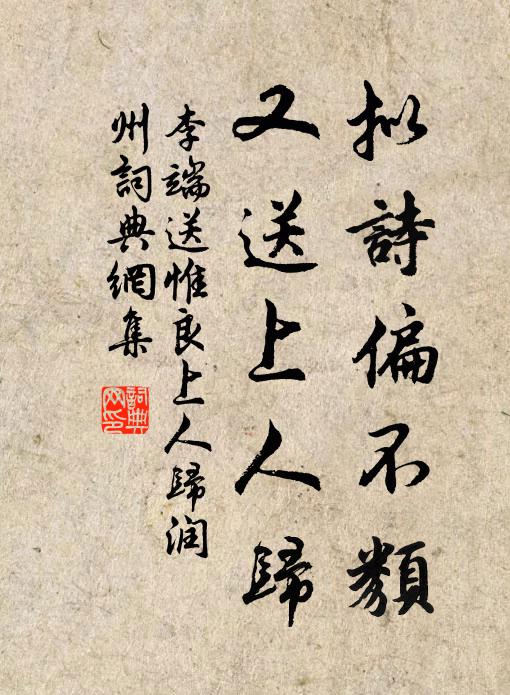 拟詩偏不類
又送上人歸
李端送惟良上人歸润
州詞典網集
詞典
网印